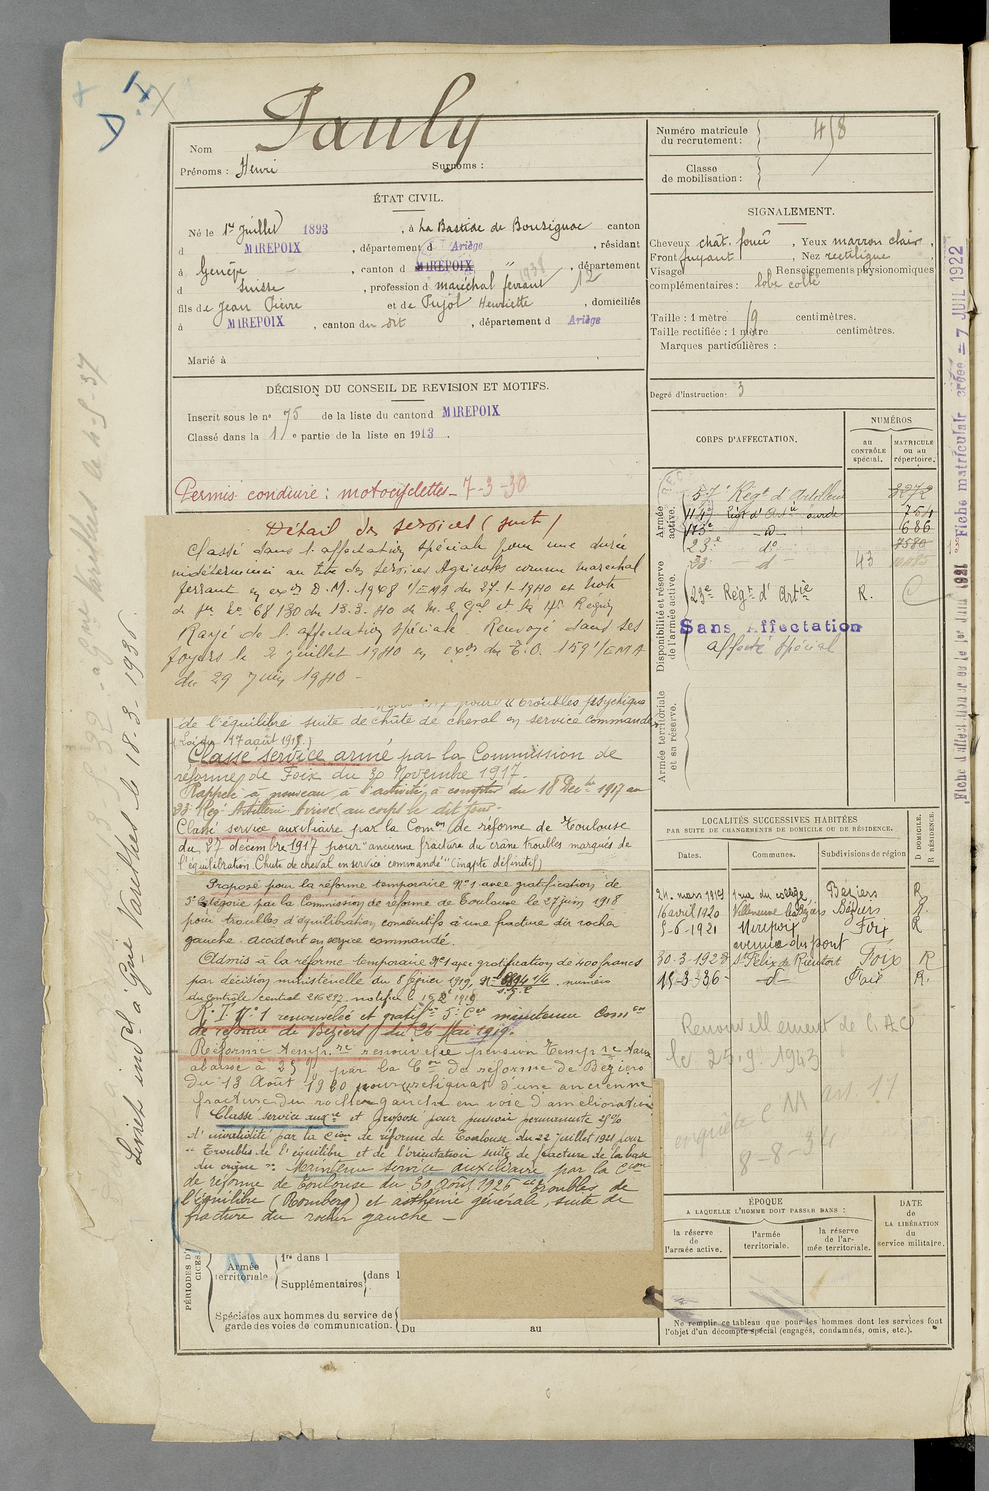 Nom Pauly
Prénoms : Henri Surnoms :
Numéro matricule du recrutement : 458
Classe de mobilisation :
ÉTAT CIVIL.
Né le 1er Juillet 1893, à La Bastide de Bousignac canton
d MIREPOIX, département d Ariège, résidant
à Genève, canton d MIREPOIX, département
d Suisse, profession d maréchal ferrant
fils de Jean Pierre et de Pujol Henriette, domiciliés
à MIREPOIX, canton du dit, département d Ariège
Marié à
SIGNALEMENT.
Cheveux chât. foncé, Yeux marron clair,
Front fuyant, Nez rectiligne
Visage Renseignements physionomiques
complémentaires : lobe collé
Taille : 1 mètre centimètres.
Taille rectifiée : 1 mètre centimètres.
Marques particulières :
Degré d'instruction : 3
DÉCISION DU CONSEIL DE REVISION ET MOTIFS.
Inscrit sous le no 75 de la liste du canton d MIREPOIX
Classé dans la 1 e partie de la liste en 1913.
Permis conduire : motocyclettes - 7-3-30
Détail des services (suite)
Classé dans l'affectation spéciale pour une durée
indéterminée au titre des services Agricoles comme maréchal
ferrant
Rayé de l'affectation spéciale. Renvoyé dans ses
foyers le 2 juillet 1940 en exon du T.O. 159 1/EMA
du 29 Juin 1940 -
troubles psychiques
de l'équilibre suite de chute de cheval en service commandé
(Loi du 17 août 1917.)
Classé service armé par la Commission de
réforme de Foix du 30 Novembre 1917.
Rappelé à nouveau à l'activité à compter du 18 Décbre 1917 au
33e Rég. Artillerie Arrivé au corps le dit jour -
Classé service auxiliaire par la Comon de réforme de Toulouse
du 27 décembre 1917 pour "ancienne fracture du crâne troubles marqués de
l'équilibration Chute de cheval en service commandé" (inapte définitif)
Proposé pour la réforme temporaire No 1 avec gratification de
5e Catégorie par la Commission de réforme de Toulouse le 27 juin 1918
pour troubles d'équilibration consécutifs à une fracture du rocher
gauche. Accident en service commandé.
Admis à la réforme temporaire No 1 avec gratification de 400 francs
par décision ministérielle du 8 février 1919, numéro
du contrôle central 216292. notifiée le 15 2 1919
R.T. No 1 renouvelée et gratifon 5e Cie maintenue Comon
de réforme de Béziers du 26 Mai 1919.
Réforme tempre renouvelée pension tempre taux
abaissé à 25 % par la Con de réforme de Béziers
du 13 Août 1920 pour reliquat d'une ancienne
fracture du rocher gauche en voie d'amélioration
Classé service auxre et proposé pour pension permanente 25%
d'invalidité par la Cion de réforme de Toulouse du 22 juillet 1921 pour
"Troubles de l'équilibre et de l'orientation suite de fracture de la base
du crâne". Maintenu service auxiliaire par la Cion
de réforme de Toulouse du 30 Août 1926 "troubles de
l'équilibre (Romberg) et asthénie générale, suite de
fracture du rocher gauche -
Armée territoriale
1re dans l
Supplémentaires dans l
Spéciales aux hommes du service de
garde des voies de communication. Du au
CORPS D'AFFECTATION.
NUMÉROS
au CONTRÔLE spécial.
MATRICULE ou au répertoire.
Armée active.
57e Régt d'Artillerie 3272
114e Régt d'Artie lourde 754
113e - d° 686
23e d° 7580
33 - d - 43
Disponibilité et réserve de l'armée active.
23e Régt d'Artie R.
Sans Affectation
affecté spécial
Armée territoriale et sa réserve.
LOCALITÉS SUCCESSIVES HABITÉES
PAR SUITE DE CHANGEMENTS DE DOMICILE OU DE RÉSIDENCE.
Dates. Communes. Subdivisions de région D DOMICILE. R RÉSIDENCE.
24 mars 1919 1 rue du collège Béziers R
16 avril 1920 Villeneuve les Béziers Béziers R.
5-6-1921 Mirepoix avenue du pont Foix R
30-3-1928 St Félix de Rieutort Foix R
15-3-36 - d - Foix R.
Renouvellement de l'A.C.
le 25.9.1943
enquête C M art 11
8-8-34
ÉPOQUE
A LAQUELLE L'HOMME DOIT PASSER DANS :
la réserve de l'armée active.
l'armée territoriale.
la réserve de l'armée territoriale.
DATE de LA LIBÉRATION du service militaire.
Ne remplir ce tableau que pour les hommes dont les services font
l'objet d'un décompte spécial (engagés, condamnés, omis, etc.).
Vaulhes le 18-3-1936.
Fiche matriculaire créée = 7 JUIL 1922